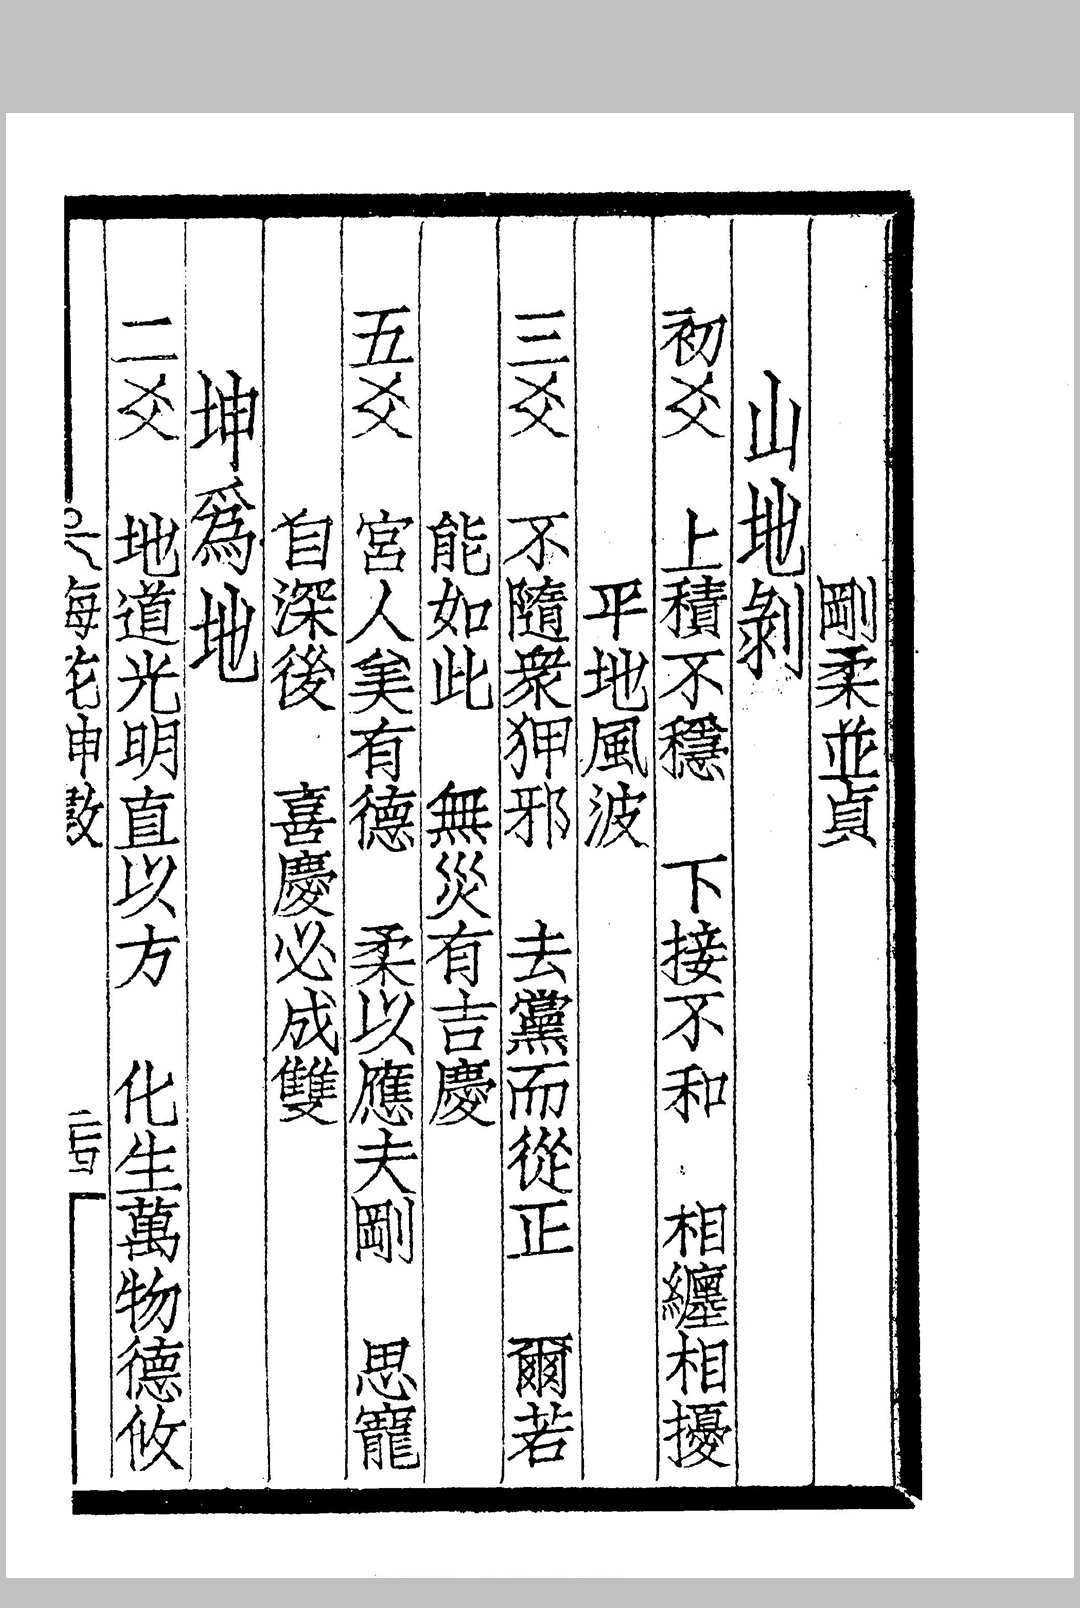 剛柔並貞
山地剝
初爻　上積不穩　下接不和　相纏相擾
平地風波
三爻　不隨衆狎邪　去黨而從正　爾若
能如此　無災有吉慶
五爻　宮人美有德　柔以應夫剛　思寵
自深後　喜慶必成雙
坤爲地
二爻　地道光明直以方　化生萬物德攸